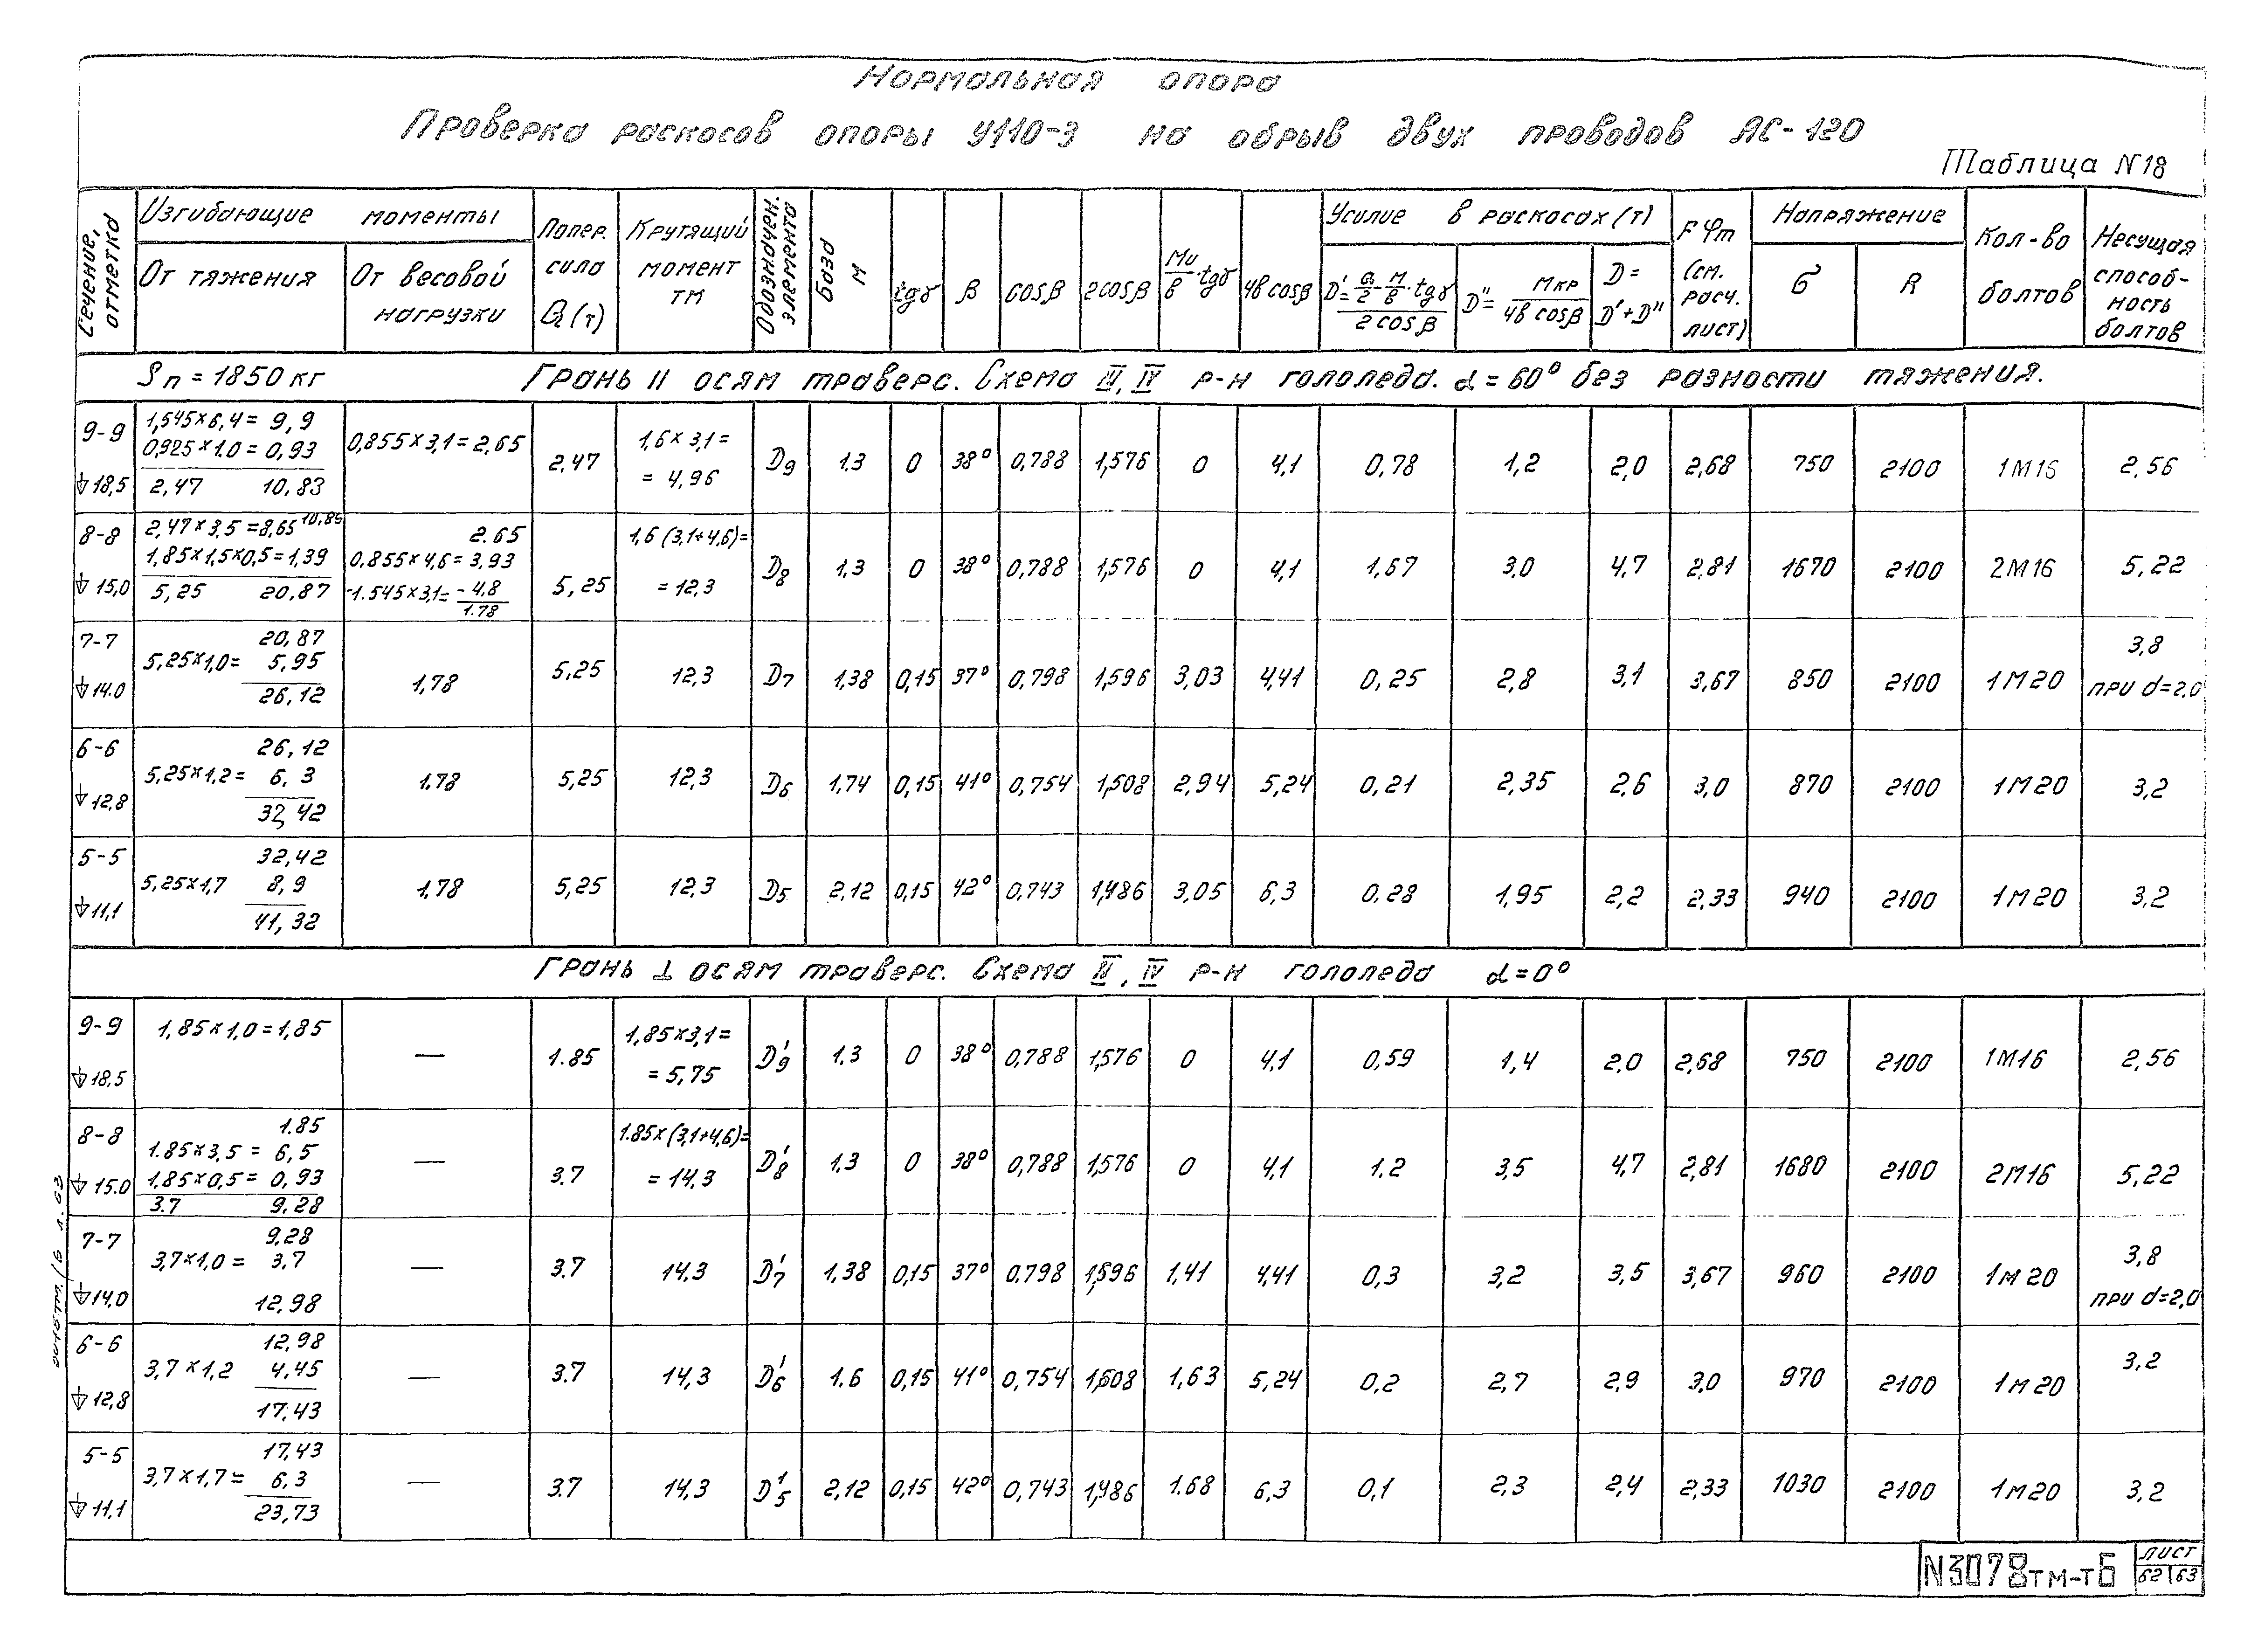 Нормальная опора
Проверка раскосов опоры У110-3 на обрыв двух проводов АС-120
Таблица N18
Сечение, отметка | Изгибающие моменты | Попер. сила Q (т) | Крутящий момент тм | Обозначен. элемента | База м | tgγ | β | cosβ | 2cosβ | Mи/в·tgγ | 4в cosβ | Усилие в раскосах (т) | Fφm (см. расч. лист) | Напряжение | Кол-во болтов | Несущая способность болтов
От тяжения | От весовой нагрузки | D'= (Q/2 - M/в·tgγ)/2cosβ | D''= Mкр/4в cosβ | D= D'+D'' | σ | R
Sп = 1850 кг Грань II осям траверс. Схема III, IV р-н гололеда. α = 60° без разности тяжения.
9-9 18,5 | 1,545×6,4 = 9,9 0,925×1.0 = 0,93 2,47 10,83 | 0,855×3,1 = 2,65 | 2,47 | 1,6×3,1= = 4,96 | D9 | 1.3 | 0 | 38° | 0,788 | 1,576 | 0 | 4,1 | 0,78 | 1,2 | 2,0 | 2,68 | 750 | 2100 | 1М16 | 2,56
8-8 15,0 | 2,47×3,5 = 8,65 10,85 1,85×1,5×0,5 = 1,39 5,25 20,87 | 2.65 0.855×4,6 = 3,93 -1.545×3,1= -4,8 1.78 | 5,25 | 1,6 (3,1+4,6)= = 12,3 | D8 | 1,3 | 0 | 38° | 0,788 | 1,576 | 0 | 4,1 | 1,67 | 3,0 | 4,7 | 2,81 | 1670 | 2100 | 2М16 | 5,22
7-7 14.0 | 20,87 5,25×1,0= 5,95 26,12 | 1,78 | 5,25 | 12,3 | D7 | 1,38 | 0,15 | 37° | 0,798 | 1,596 | 3,03 | 4,41 | 0,25 | 2,8 | 3,1 | 3,67 | 850 | 2100 | 1М20 | 3,8 при d=2,0
6-6 12,8 | 26,12 5,25×1,2= 6,3 32,42 | 1.78 | 5,25 | 12,3 | D6 | 1,74 | 0,15 | 41° | 0,754 | 1,508 | 2,94 | 5,24 | 0,21 | 2,35 | 2,6 | 3,0 | 870 | 2100 | 1М20 | 3,2
5-5 11,1 | 32,42 5,25×1,7 8,9 41,32 | 1,78 | 5,25 | 12,3 | D5 | 2,12 | 0,15 | 42° | 0,743 | 1,486 | 3,05 | 6,3 | 0,28 | 1,95 | 2,2 | 2,33 | 940 | 2100 | 1М20 | 3,2
Грань ⊥ осям траверс. Схема II, IV р-н гололеда α=0°
9-9 18,5 | 1,85×1,0 = 1,85 | — | 1.85 | 1,85×3,1= = 5,75 | D'9 | 1.3 | 0 | 38° | 0,788 | 1,576 | 0 | 4,1 | 0,59 | 1,4 | 2,0 | 2,68 | 750 | 2100 | 1М16 | 2,56
8-8 15.0 | 1.85 1.85×3,5 = 6,5 1,85×0,5 = 0,93 3.7 9.28 | — | 3.7 | 1.85×(3,1+4,6)= = 14,3 | D'8 | 1,3 | 0 | 38° | 0,788 | 1,576 | 0 | 4,1 | 1.2 | 3,5 | 4,7 | 2,81 | 1680 | 2100 | 2М16 | 5,22
7-7 14,0 | 9,28 3,7×1,0 = 3,7 12,98 | — | 3.7 | 14,3 | D'7 | 1,38 | 0,15 | 37° | 0,798 | 1,596 | 1,41 | 4,41 | 0,3 | 3,2 | 3,5 | 3,67 | 960 | 2100 | 1М20 | 3,8 при d=2,0
6-6 12,8 | 12,98 3,7×1,2 4,45 17,43 | — | 3.7 | 14,3 | D'6 | 1.6 | 0,15 | 41° | 0,754 | 1,608 | 1,63 | 5,24 | 0,2 | 2,7 | 2,9 | 3,0 | 970 | 2100 | 1М20 | 3,2
5-5 11.1 | 17,43 3,7×1,7= 6,3 23,73 | — | 3.7 | 14,3 | D'5 | 2,12 | 0,15 | 42° | 0,743 | 1,486 | 1.68 | 6,3 | 0,1 | 2,3 | 2,4 | 2,33 | 1030 | 2100 | 1М20 | 3,2
N3078тм-т6
лист
62 63